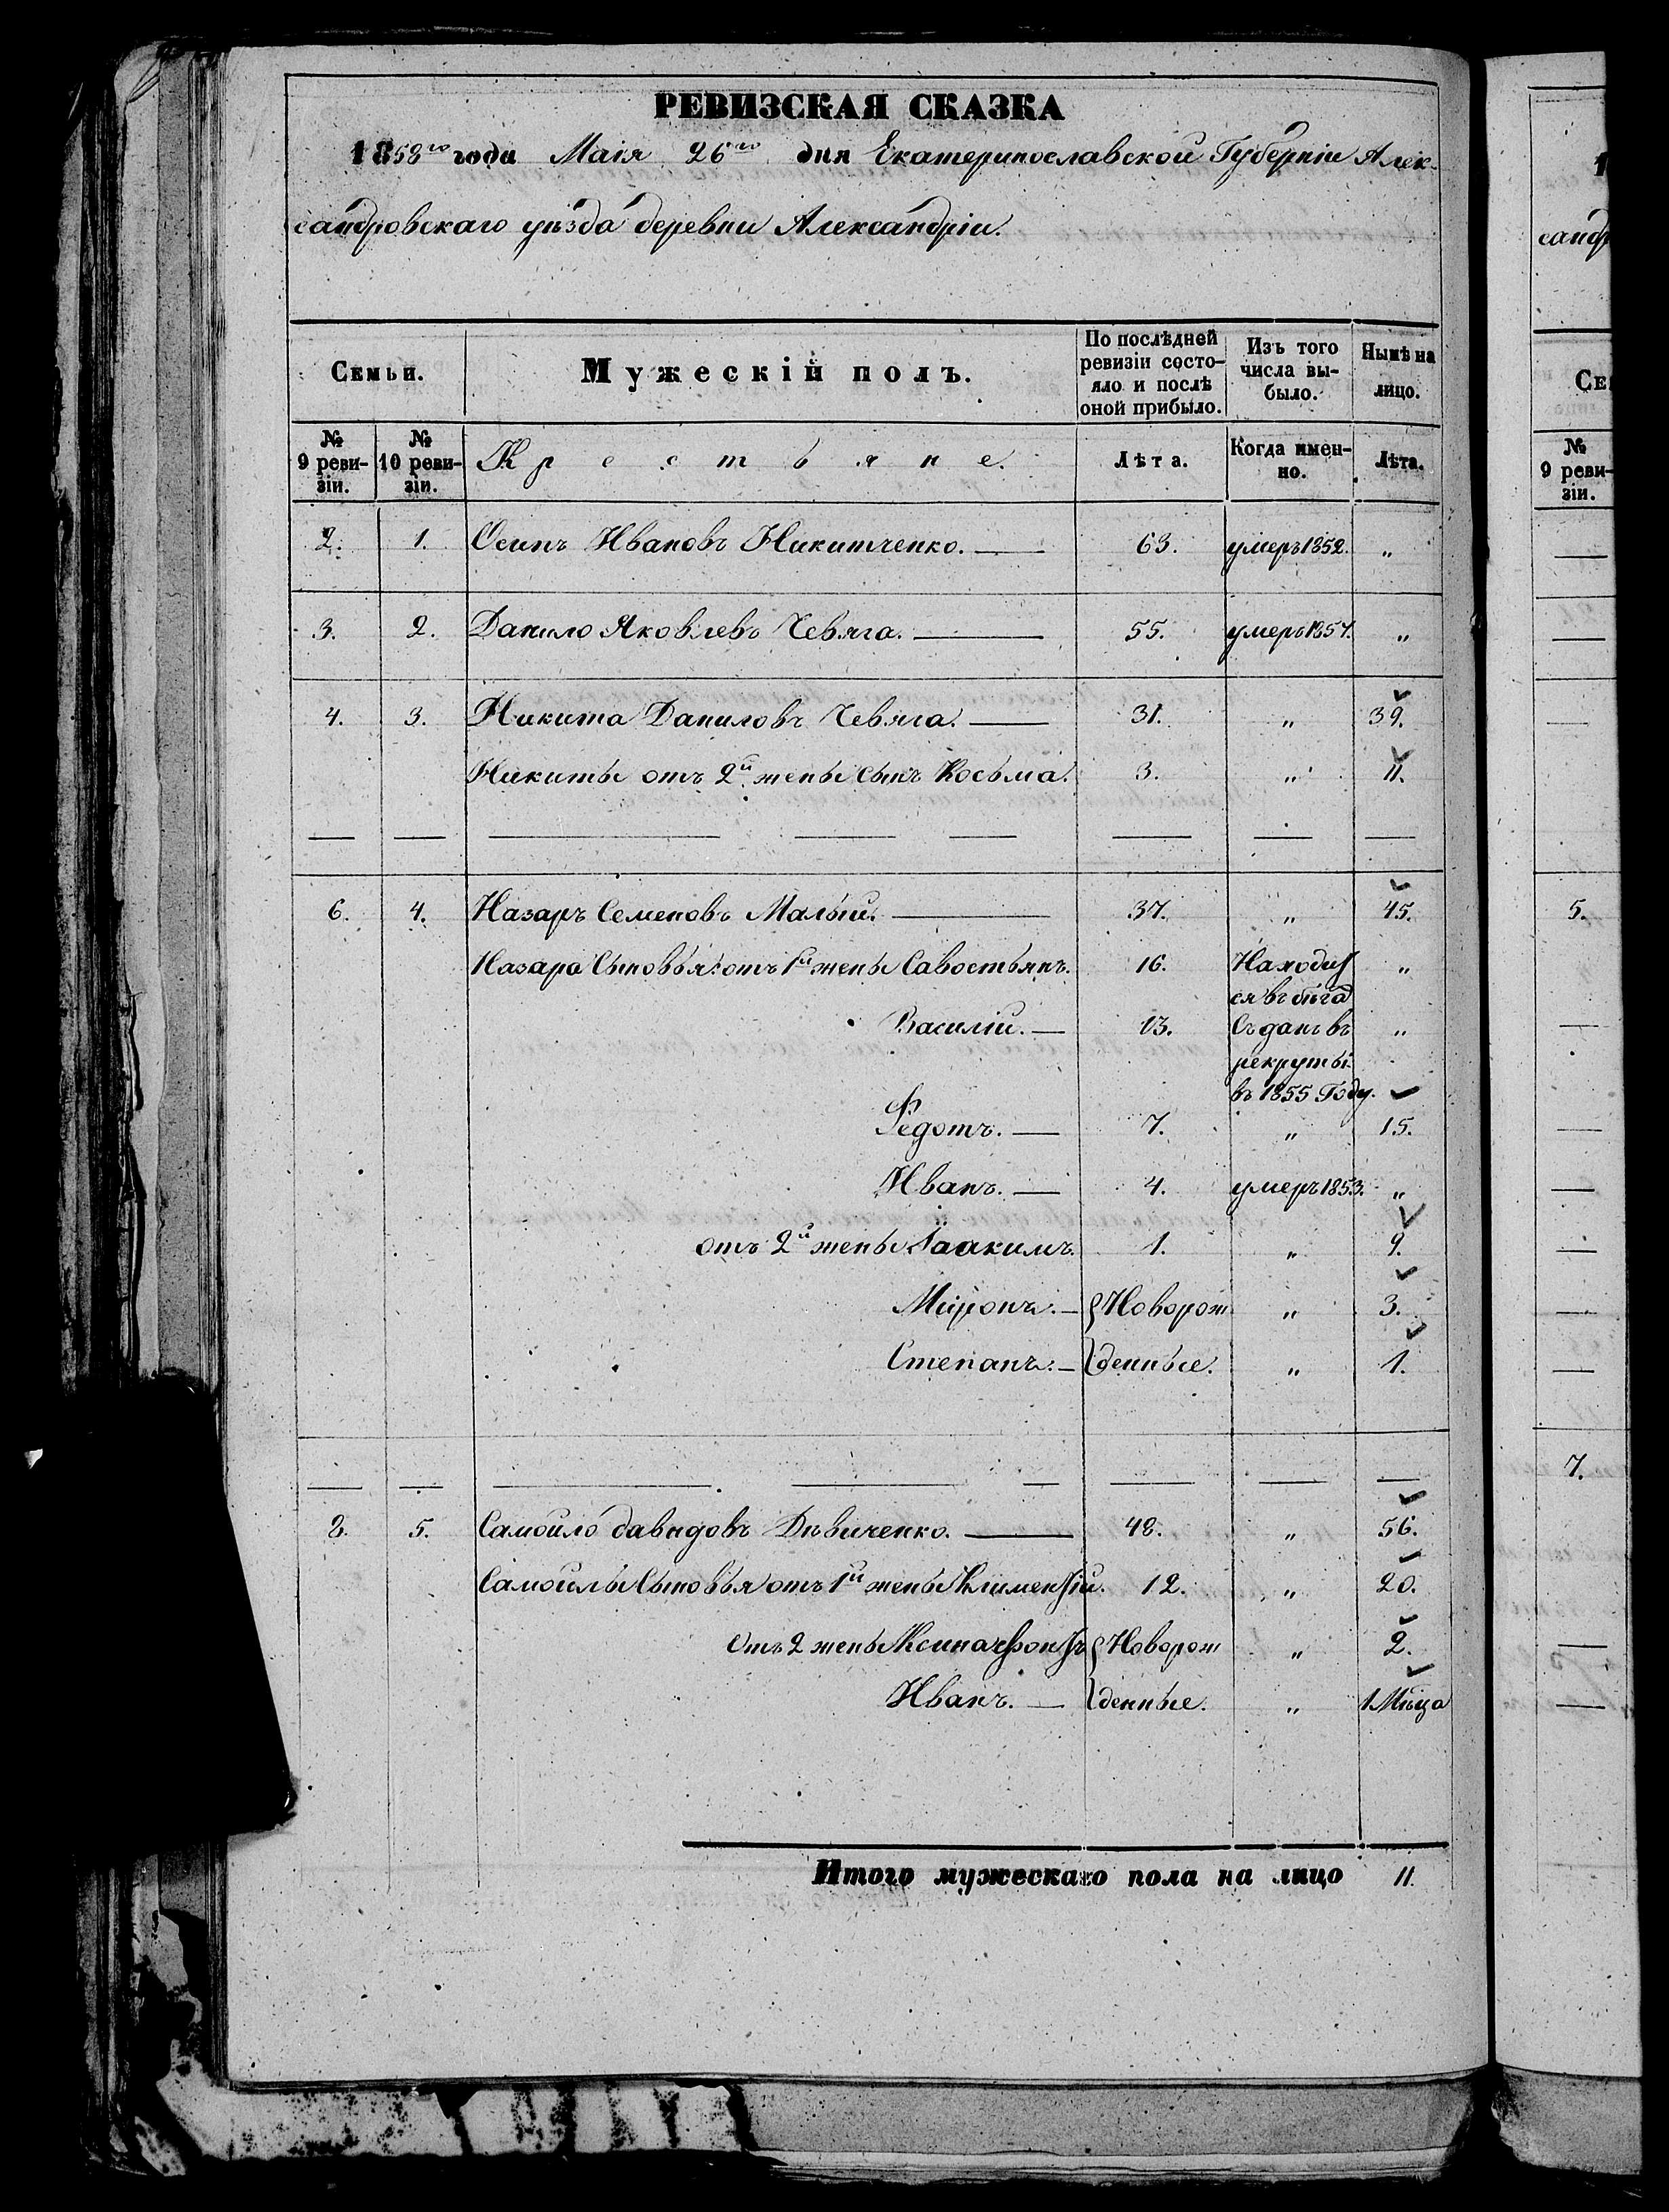 РЕВИЗСКАЯ СКАЗКА
1858го года Маія 26го дня Екатеринославской Губерніи Алек-
сандровскаго уѣзда деревни Александріи.
Семьи. Мужескій полъ. По послѣдней ревизіи состо-яло и послѣ оной прибыло. Изъ того числа вы-было. Нынѣ на лицо.
№ 9 реви-зіи. № 10 реви-зіи. Крестьяне. Лѣта. Когда имен-но. Лѣта.
2. 1. Осипъ Ивановъ Никитченко. — 63. умеръ 1852. „
3. 2. Данило Яковлевъ Чевяга. — 55. умеръ 1857. „
4. 3. Никита Даниловъ Чевяга. — 31. „ 39.
Никиты отъ 2й жены сынъ Косьма. 3. „ 11.
6. 4. Назаръ Семеновъ Малый. — 37. „ 45.
Назара Сыновья: отъ 1й жены Савостьянъ. 16. Находит „
ся въ бѣга
Василій. — 13. Съданъ въ „
рекруты
въ 1855 Году.
Федотъ. — 7. „ 15.
Иванъ. — 4. умеръ 1853. „
отъ 2й жены Іоакимъ. 1. „ 9.
Миронъ. — Новорож „ 3.
Степанъ. — денные. „ 1.
8. 5. Самойло Давидовъ Дѣвиченко. — 48. „ 56.
Самойлы Сыновья отъ 1й жены Климентій. 12. „ 20.
Отъ 2 жены Ксинофонтъ Новорож „ 2.
Иванъ. — денные. „ 1 Мѣца
Итого мужескаго пола на лицо 11.
1
санд
Се
№
9 реви-
зіи.
5.
7.